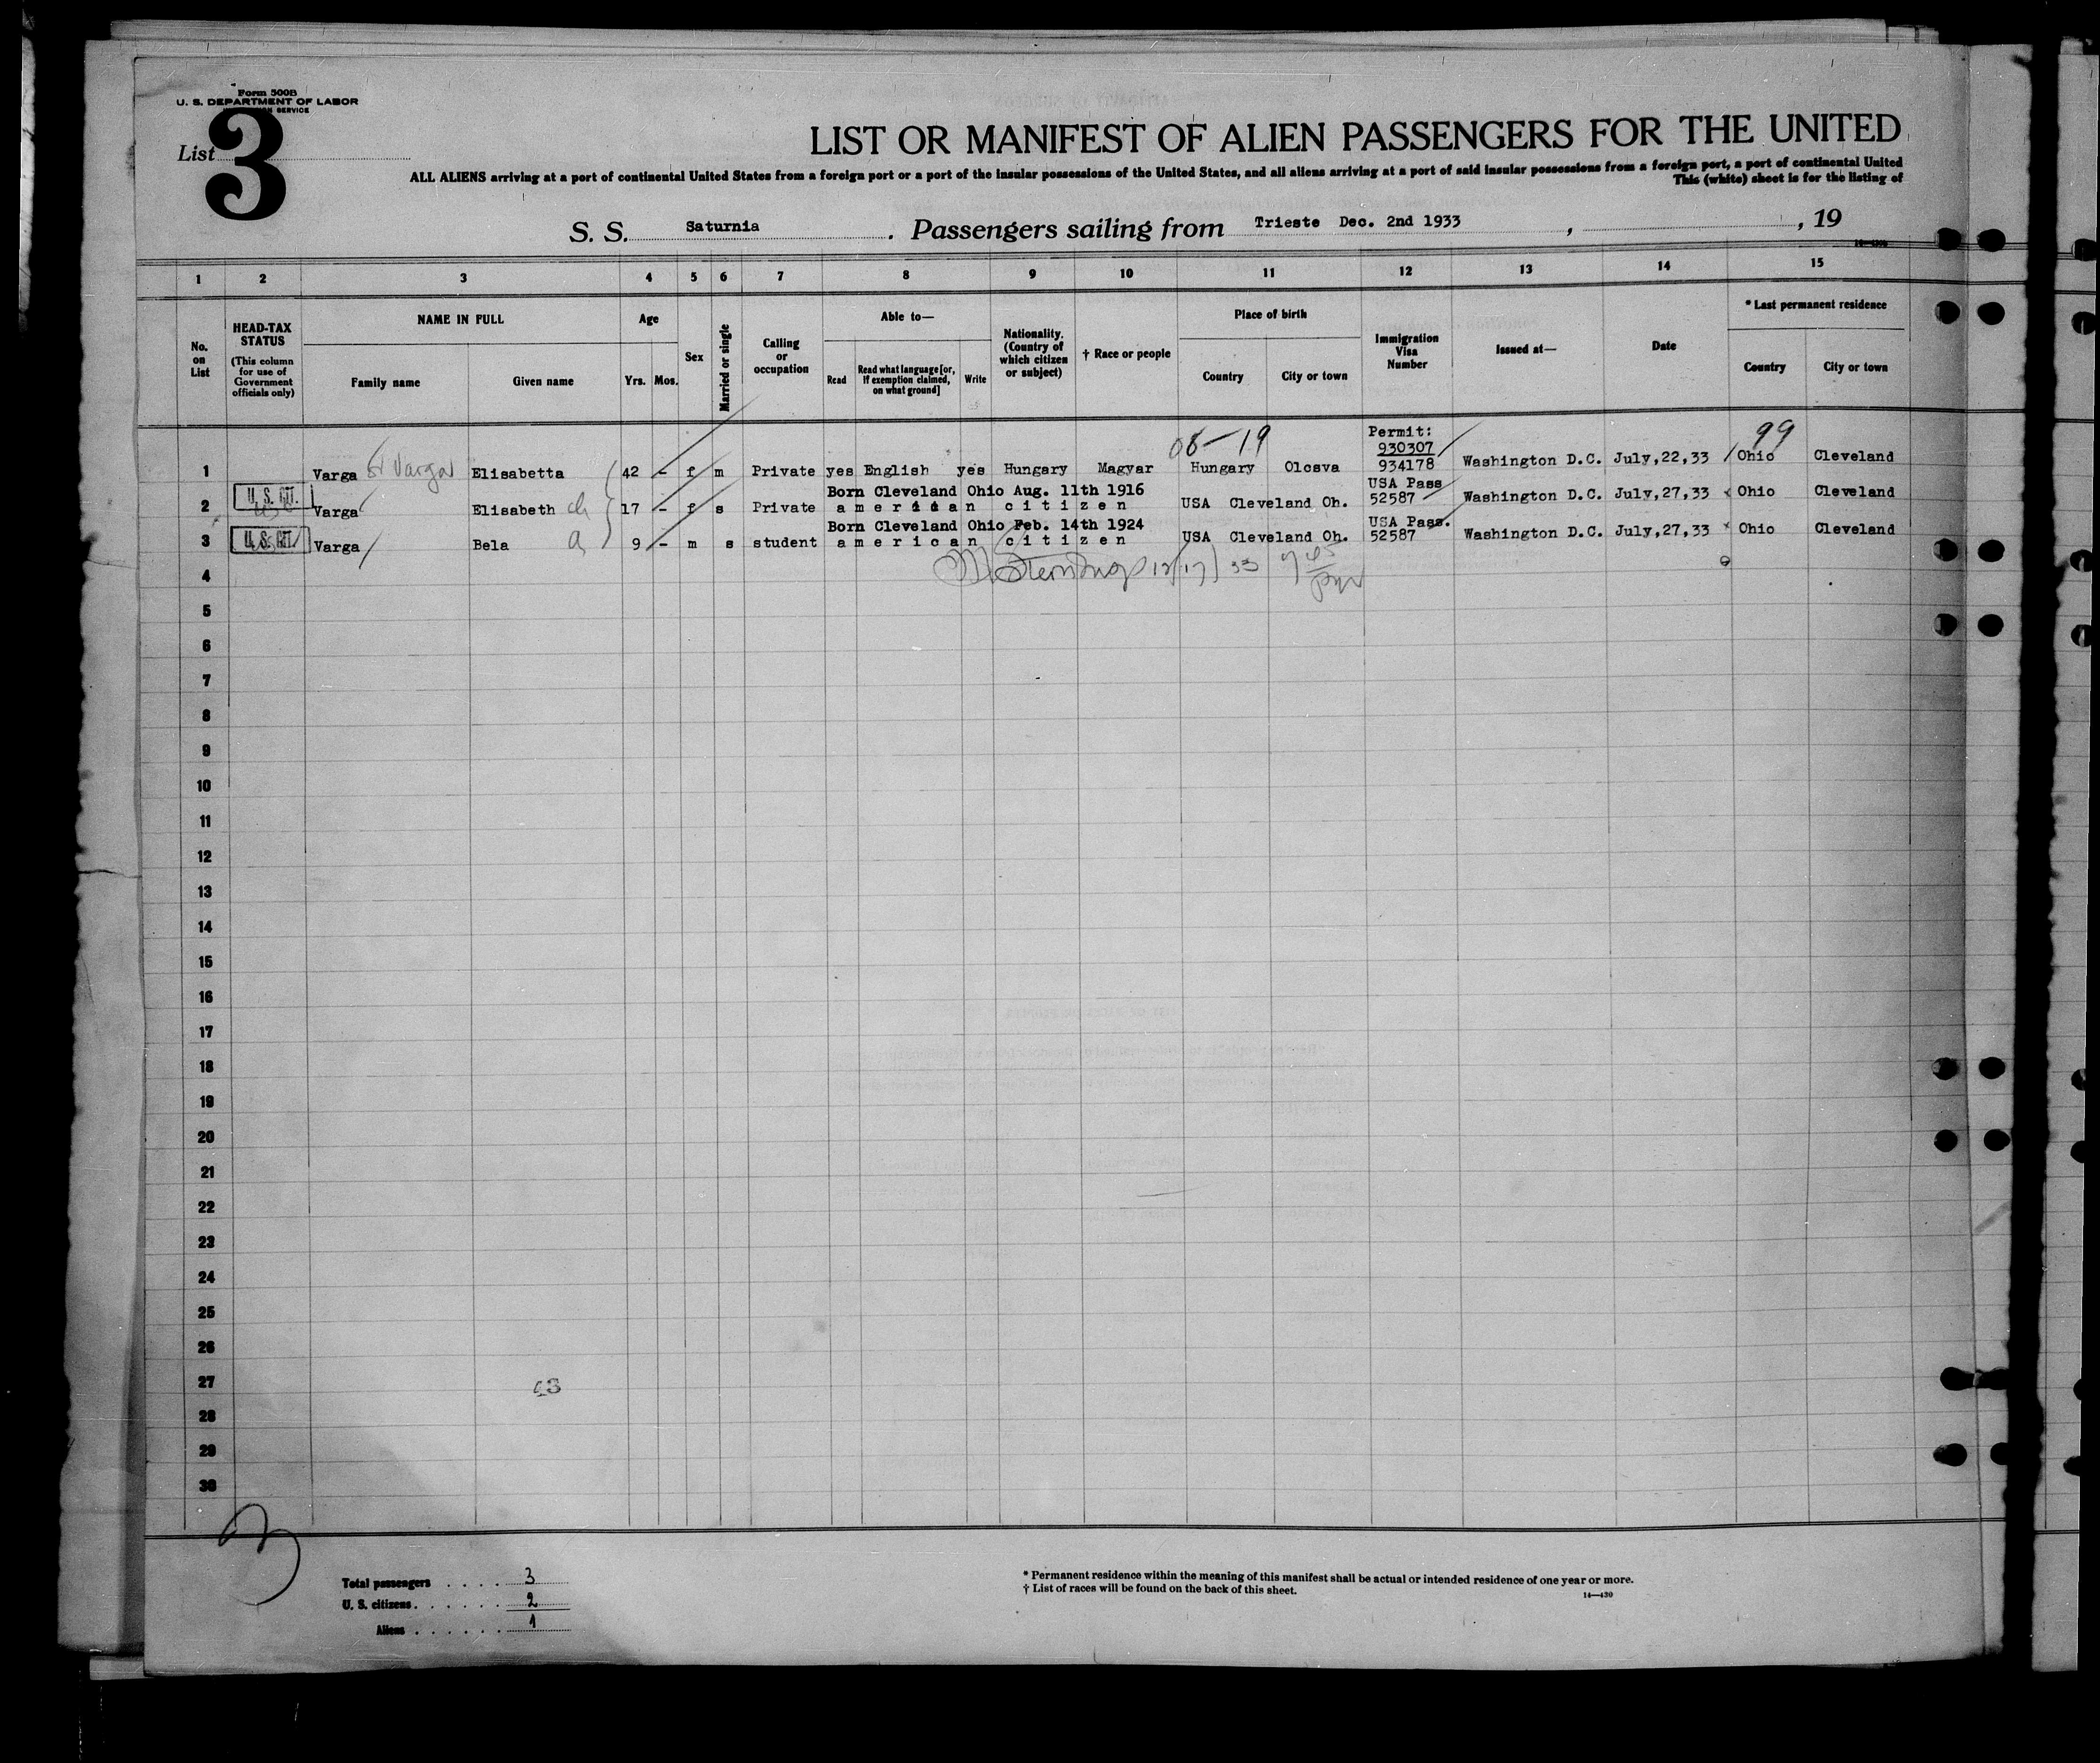 Form 500B
U. S. DEPARTMENT OF LABOR
SERVICE
List 3
LIST OR MANIFEST OF ALIEN PASSENGERS FOR THE UNITED
ALL ALIENS arriving at a port of continental United States from a foreign port or a port of the insular possessions of the United States, and all aliens arriving at a port of said insular possessions from a foreign port, a port of continental United
This (white) sheet is for the listing of
S. S. Saturnia . Passengers sailing from Trieste Dec. 2nd 1933 , , 19
1 2 3 4 5 6 7 8 9 10 11 12 13 14 15
No. on List
HEAD-TAX STATUS
(This column for use of Government officials only)
NAME IN FULL
Family name Given name
Age
Yrs. Mos.
Sex
Married or single
Calling or occupation
Able to—
Read Read what language [or, if exemption claimed, on what ground] Write
Nationality. (Country of which citizen or subject)
† Race or people
Place of birth
Country City or town
Immigration Visa Number
Issued at—
Date
* Last permanent residence
Country City or town
08-19 Permit: 99
930307
1 Varga Varga Elisabetta 42 - f m Private yes English yes Hungary Magyar Hungary Olcsva 934178 Washington D.C. July,22,33 Ohio Cleveland
U. S. CIT. Born Cleveland Ohio Aug. 11th 1916 USA Pass
2 Varga Elisabeth ch 17 - f s Private american citizen USA Cleveland Oh. 52587 Washington D.C. July,27,33 Ohio Cleveland
U. S. CIT. Born Cleveland Ohio Feb. 14th 1924 USA Pass.
3 Varga Bela 9 - m s student american citizen USA Cleveland Oh. 52587 Washington D.C. July,27,33 Ohio Cleveland
4 12/17/33
5
6
7
8
9
10
11
12
13
14
15
16
17
18
19
20
21
22
23
24
25
26
27 43
28
29
30
3
Total passengers . . . . 3
U. S. citizens . . . . . . 2
Aliens . . . . . . 1
* Permanent residence within the meaning of this manifest shall be actual or intended residence of one year or more.
† List of races will be found on the back of this sheet.
14—430